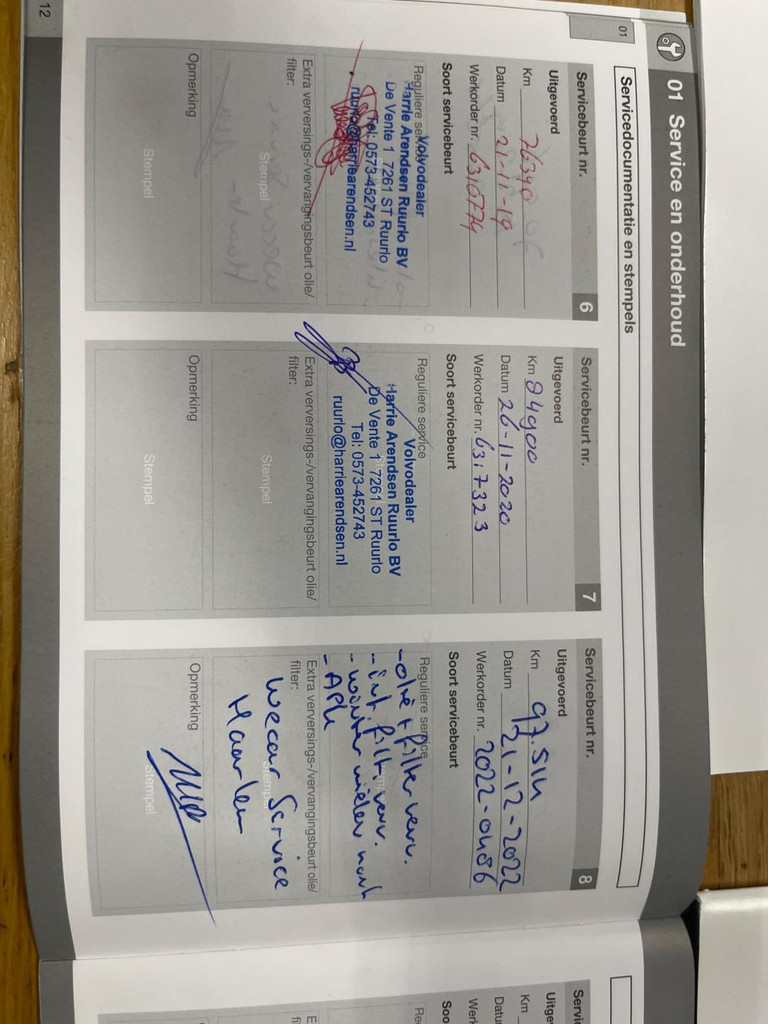 01 Service en onderhoud
01
Servicedocumentatie en stempels
Servicebeurt nr. 6
Uitgevoerd
Km 76340
Datum 21-11-19
Werkorder nr. 6310774
Soort servicebeurt
Reguliere service
Volvodealer
Harrie Arendsen Ruurlo BV
De Vente 1 7261 ST Ruurlo
Tel: 0573-452743
ruurlo@harriearendsen.nl
Extra verversings-/vervangingsbeurt olie/
filter:
Stempel
Opmerking
Stempel
Servicebeurt nr. 7
Uitgevoerd
Km 84900
Datum 26-11-2020
Werkorder nr. 6317323
Soort servicebeurt
Reguliere service
Volvodealer
Harrie Arendsen Ruurlo BV
De Vente 1 7261 ST Ruurlo
Tel: 0573-452743
ruurlo@harriearendsen.nl
Extra verversings-/vervangingsbeurt olie/
filter:
Stempel
Opmerking
Stempel
Servicebeurt nr. 8
Uitgevoerd
Km 97.514
Datum 21-12-2022
Werkorder nr. 2022-0486
Soort servicebeurt
Reguliere service
- olie + filter verv.
- int. filt. verv.
- winter wielen
- APK
Extra verversings-/vervangingsbeurt olie/
filter:
Wecar Service
Haarlem
Stempel
Opmerking
Stempel
12